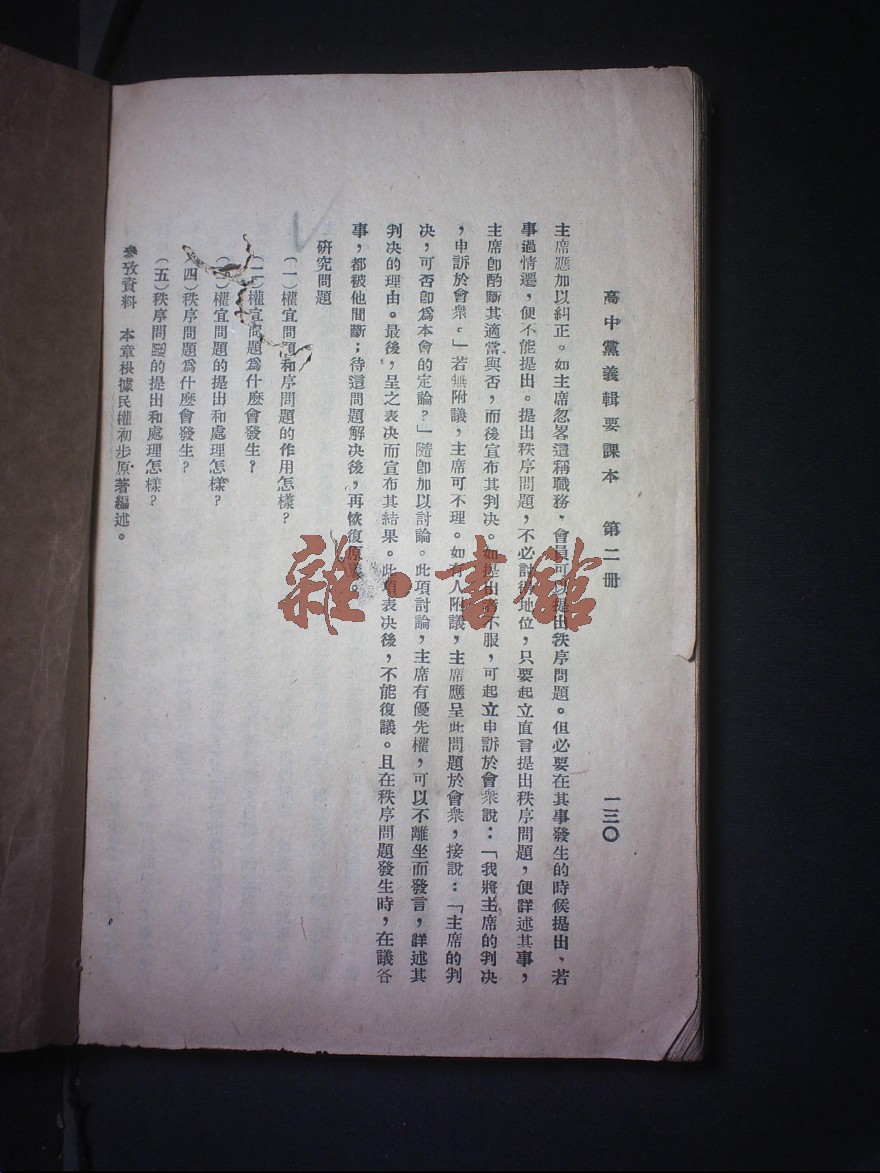 高中黨義輯要課本 第二册 一三〇
主席應加以糾正。如主席忽畧這稱職務，會員可以提出秩序問題。但必要在其事發生的時候提出、若
事過情遷，便不能提出。提出秩序問題，不必討得地位，只要起立直言提出秩序問題，便詳述其事，
主席卽酌斷其適當與否，而後宣布其判决。如提出者不服，可起立申訴於會衆說：「我將主席的判决
，申訴於會衆。」若無附議，主席可不理。如有人附議，主席應呈此問題於會衆，接說：「主席的判
决，可否卽爲本會的定論？」隨卽加以討論。此項討論，主席有優先權，可以不離坐而發言，詳述其
判决的理由。最後，呈之表决而宣布其結果。此項表决後，不能復議。且在秩序問題發生時，在議各
事，都被他間斷；待這問題解决後，再恢復原。
研究問題
（一）權宜問題和序問題的作用怎樣？
（二）權宜問題爲什麽會發生？
（）權宜問題的提出和處理怎樣？
（四）秩序問題爲什麽會發生？
（五）秩序問題的提出和處理怎樣？
參攷資料 本章根據民權初步原著編述。
雜·書館